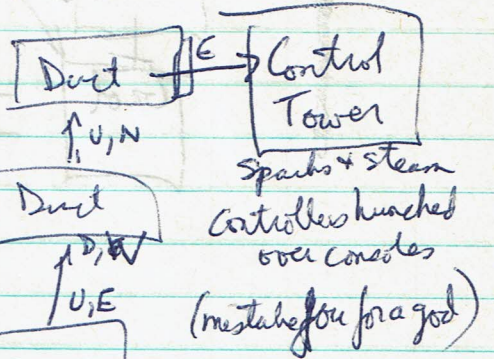 Duct
E
Control
Tower
U, N
Sparks + steam
Duct
Controllers hunched
over consoles
D,
U, E
(mistake you for a god)